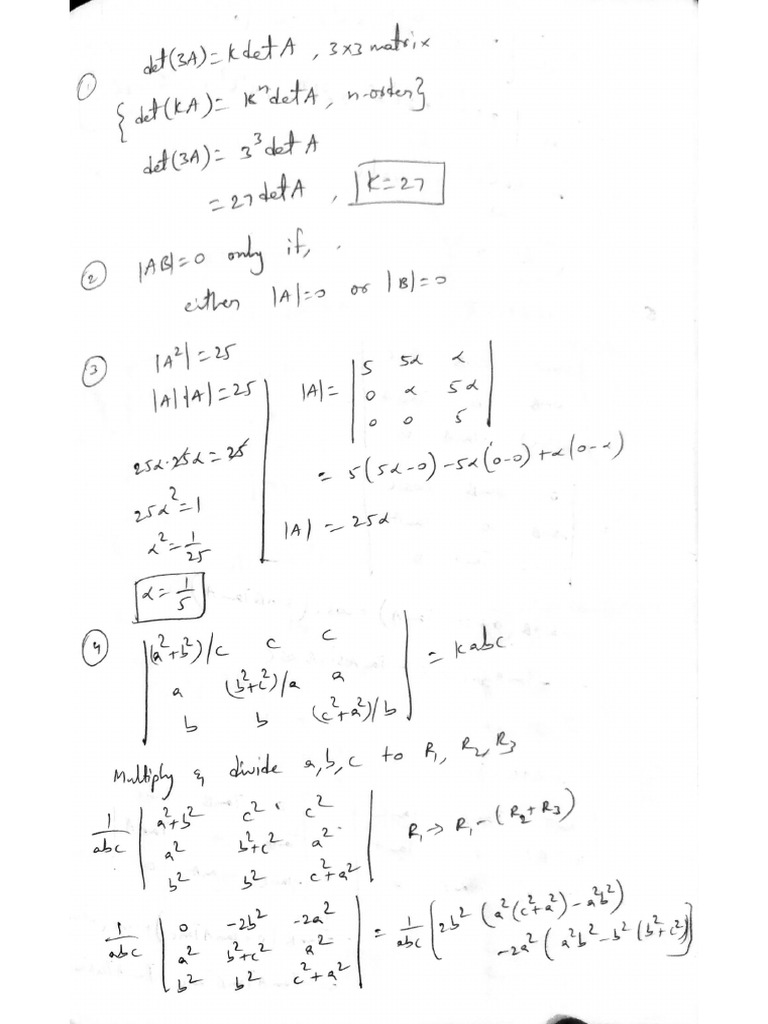 ① det(3A) = K det A , 3×3 matrix
{ det(KA) = Kⁿ det A, n-order}
det(3A) = 3³ det A
= 27 det A , K = 27
② |AB| = 0 only if,
either |A|=0 or |B|=0
③ |A²| = 25
|A||A| = 25
25α·25α = 25
25α² = 1
α² = 1/25
α = 1/5
|A| = | 5 5α α |
| 0 α 5α |
| 0 0 5 |
= 5(5α-0) - 5α(0-0) + α(0-α)
|A| = 25α
④ | (a²+b²)/c c c | = Kabc
| a (b²+c²)/a a |
| b b (c²+a²)/b |
Multiply & divide a,b,c to R₁, R₂, R₃
1/abc | a²+b² c² c² |
| a² b²+c² a² | R₁ → R₁ - (R₂+R₃)
| b² b² c²+a² |
1/abc | 0 -2b² -2a² | = 1/abc [ 2b² (a²(c²+a²) - a²b²)
| a² b²+c² a² | -2a² (a²b² - b²(b²+c²)]
| b² b² c²+a² |